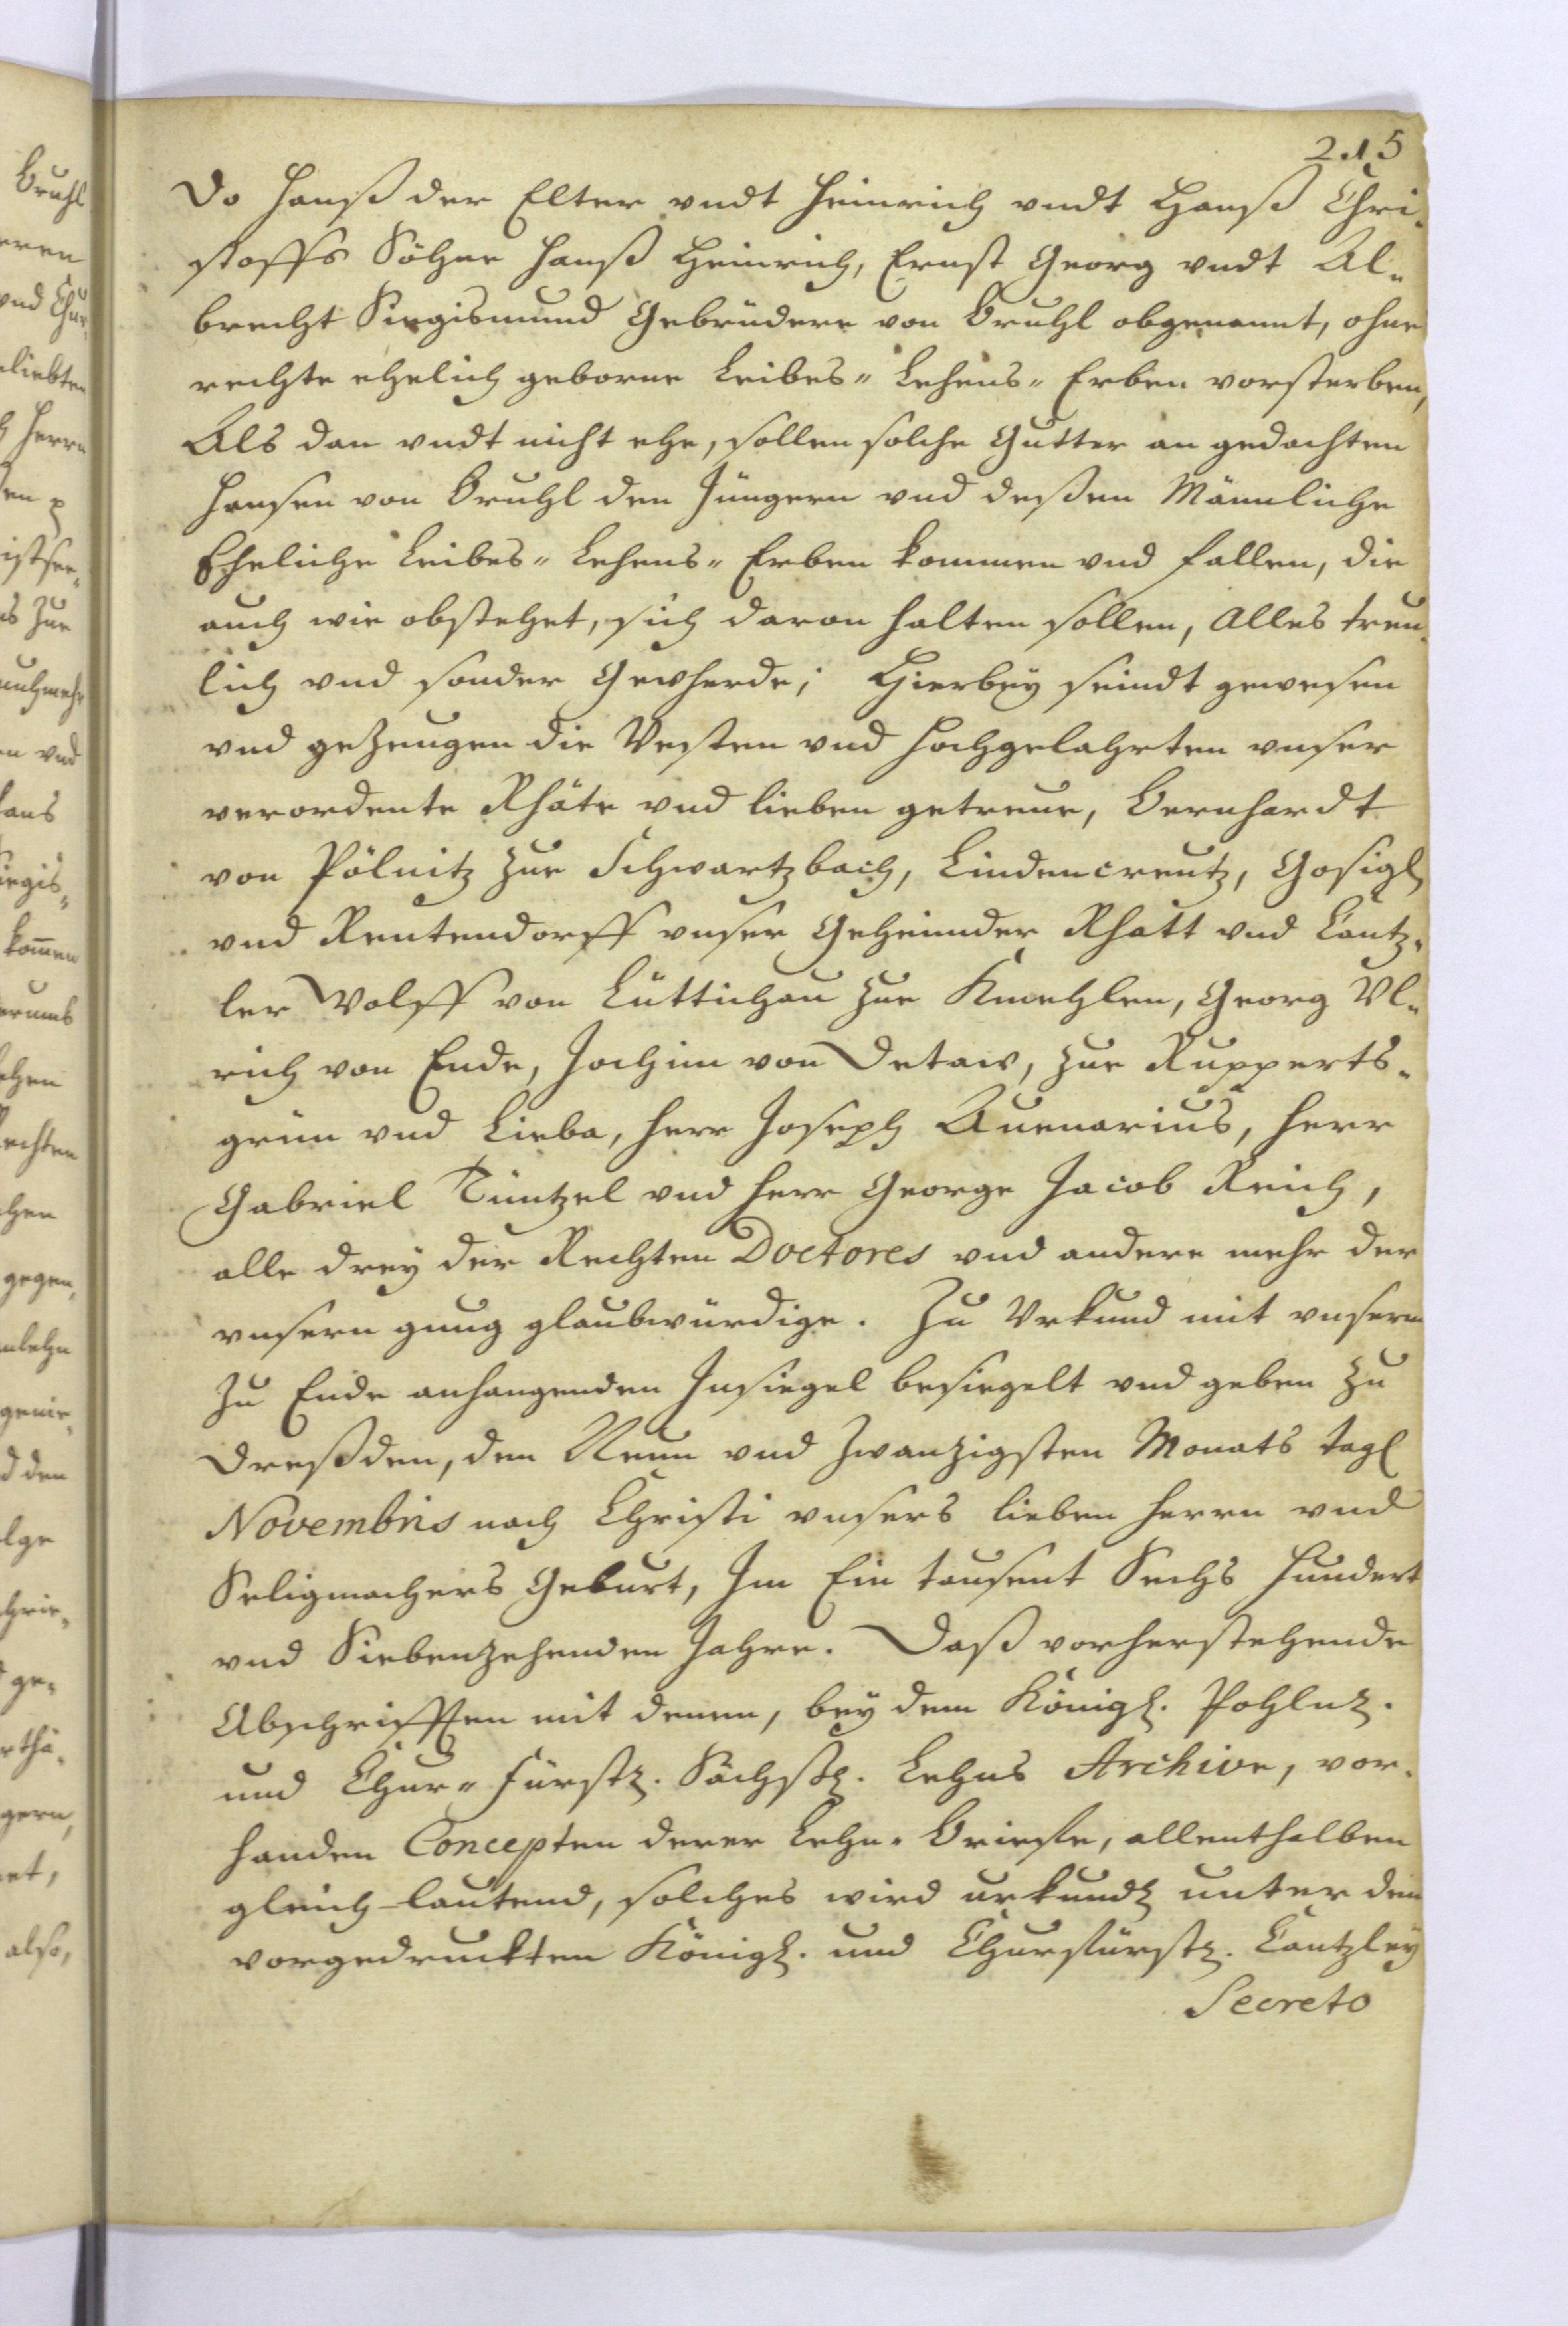 215
Bruhl
Do Hanß der Elter vndt Heinrich vndt Hanß Chri-
stoffs Söhne Hanß Heinrich, Ernst Georg vndt Al-
brecht Siegismund Gebrüdere von Bruhl obgenannt, ohne
rechte ehelich geborne Leibes- Lehens- Erben vorsterben,
Als dan vndt nicht ehe, sollen solche Gutter an gedachten
Hansen von Bruhl den Jüngern vnd deßen Männliche
Eheliche Leibes- Lehens- Erben kommen vnd fallen, die
auch wie obstehet, sich daran halten sollen, Alles treu-
lich vnd sonder Gewherde; Hierbey seindt gewesen
vnd gezeugen die Vesten vnd Hochgelahrten vnser
verordente Rhäte vnd lieben getreue, Bernhardt
von Pölnitz zur Schwartzbach, Lindencreutz, Gosigk
vnd Reutendorff vnser Geheimder Rhatt vnd Cantz-
ler Wolff von Lüttichau zur Kmehlen, Georg Vl-
rich von Ende, Jochim von Oetaw, zur Rupperts-
grün vnd Lieba, Herr Joseph Auenarius, Herr
Gabriel Tüntzel vnd Herr George Jacob Reich,
alle drey der Rechten Doctores vnd andere mehr der
vnsern gnug glaubwürdige. Zu Vrkund mit vnserm
zu Ende anhangenden Insiegel besiegelt vnd geben zu
Dreßden, den Neun vnd zwanzigsten Monats tagk
Novembris nach Christi vnsers lieben Herrn vnd
Seligmachers Geburt, Im Ein tausent Sechs Hundert
vnd Siebenzehenden Jahre. Daß vorherstehende
Abschrifften mit denen, bey dem Königl. Pohln.
und Chur- Fürstl. Sächsl. Lehns Archive, vor-
handen Concepten derer Lehn- Brieffe, allenthalben
gleich-lautend, solches wird urkundl. unter dem
vorgedruckten Königl. und Churfürstl. Cantzley
Secreto